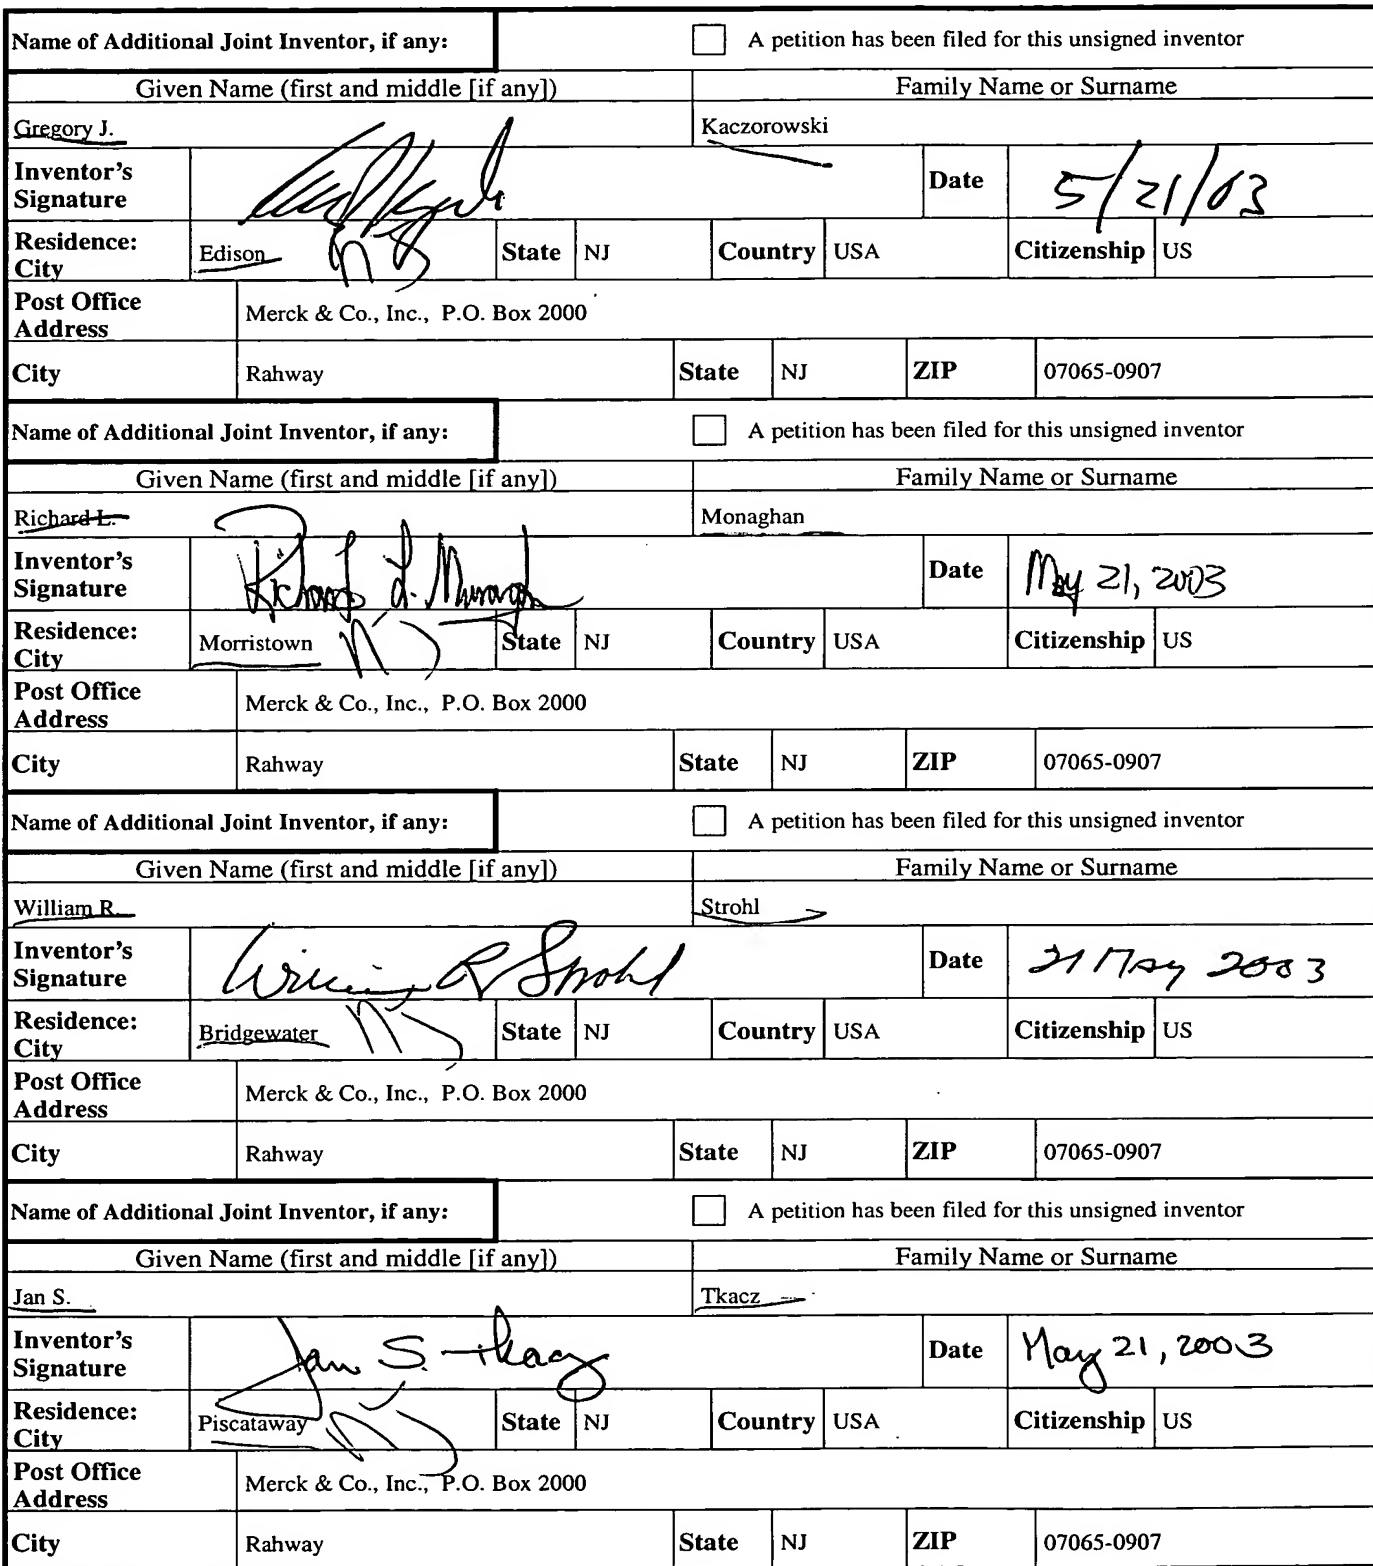 Name of Additional Joint Inventor, if any: A petition has been filed for this unsigned inventor
Given Name (first and middle [if any]) Family Name or Surname
Gregory J. Kaczorowski
Inventor's Signature Date 5/21/03
Residence: City Edison NJ State NJ Country USA Citizenship US
Post Office Address Merck & Co., Inc., P.O. Box 2000
City Rahway State NJ ZIP 07065-0907
Name of Additional Joint Inventor, if any: A petition has been filed for this unsigned inventor
Given Name (first and middle [if any]) Family Name or Surname
Richard L. Monaghan
Inventor's Signature Richard L. Monaghan Date May 21, 2003
Residence: City Morristown NJ State NJ Country USA Citizenship US
Post Office Address Merck & Co., Inc., P.O. Box 2000
City Rahway State NJ ZIP 07065-0907
Name of Additional Joint Inventor, if any: A petition has been filed for this unsigned inventor
Given Name (first and middle [if any]) Family Name or Surname
William R. Strohl
Inventor's Signature William R Strohl Date 21 May 2003
Residence: City Bridgewater NJ State NJ Country USA Citizenship US
Post Office Address Merck & Co., Inc., P.O. Box 2000
City Rahway State NJ ZIP 07065-0907
Name of Additional Joint Inventor, if any: A petition has been filed for this unsigned inventor
Given Name (first and middle [if any]) Family Name or Surname
Jan S. Tkacz
Inventor's Signature Jan S. Tkacz Date May 21, 2003
Residence: City Piscataway NJ State NJ Country USA Citizenship US
Post Office Address Merck & Co., Inc., P.O. Box 2000
City Rahway State NJ ZIP 07065-0907